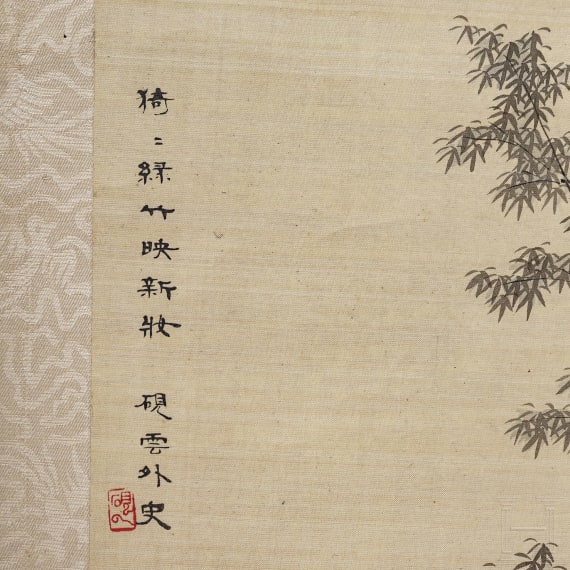 猗〻緑竹映新妝 硯雲外史